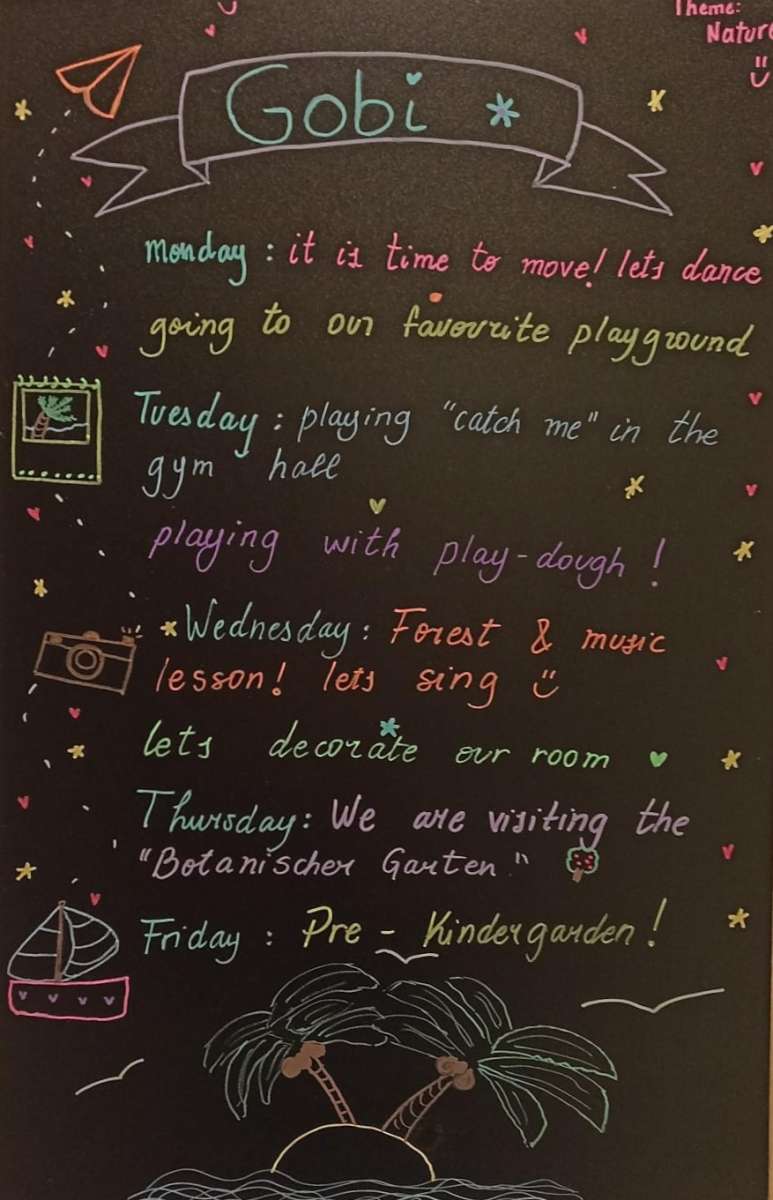 Theme:
Nature
Gobi
monday : it is time to move! lets dance
going to our favourite playground
Tuesday : playing "catch me" in the
gym hall
playing with play-dough !
Wednesday : Forest & music
lesson! lets sing
lets decorate our room
Thursday: We are visiting the
"Botanischer Garten"
Friday : Pre - Kindergarden !